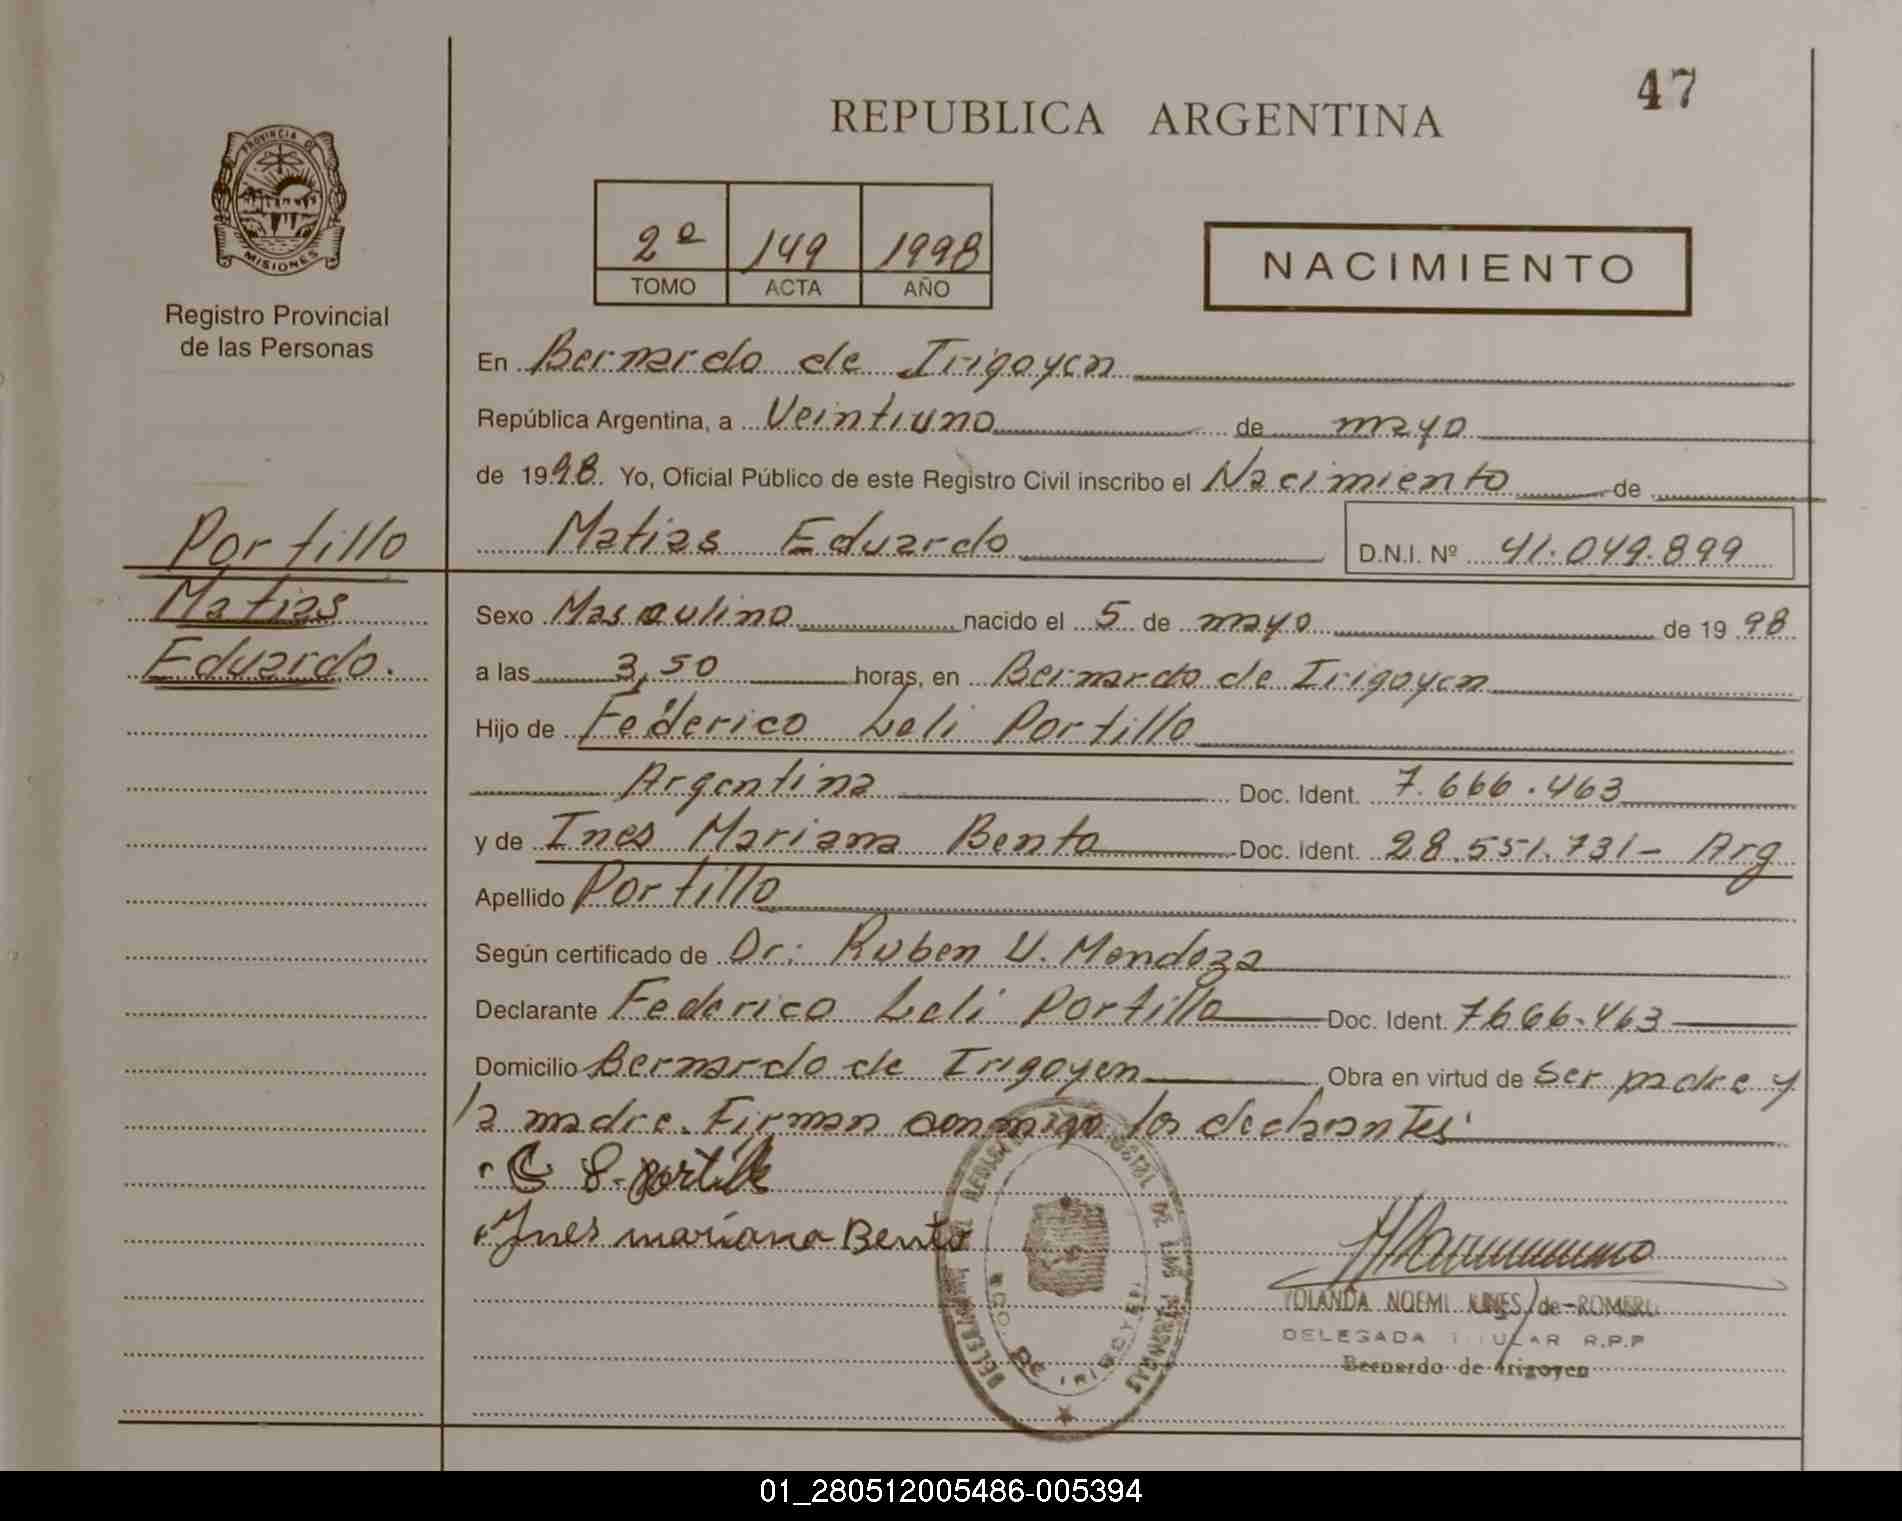 47
REPUBLICA ARGENTINA
PROVINCIA DE
MISIONES
Registro Provincial
de las Personas
2º 149 1998
TOMO ACTA AÑO
NACIMIENTO
En Bernardo de Irigoyen
República Argentina, a Veintiuno de mayo
de 1998. Yo, Oficial Público de este Registro Civil inscribo el Nacimiento de
Matias Eduardo D.N.I. Nº 41.049.899
Portillo
Matias
Eduardo.
Sexo Masculino nacido el 5 de mayo de 1998
a las 3,50 horas, en Bernardo de Irigoyen
Hijo de Federico Leli Portillo
Argentina Doc. Ident. 7.666.463
y de Ines Mariana Bento Doc. Ident. 28.551.731- Arg
Apellido Portillo
Según certificado de Dr: Ruben U. Mendoza
Declarante Federico Leli Portillo Doc. Ident. 7666.463
Domicilio Bernardo de Irigoyen Obra en virtud de ser padre y
la madre. Firman conmigo los declarantes
Ines mariana Bento
YOLANDA NOEMI de ROMERO
DELEGADA TITULAR R.P.P
Bernardo de Irigoyen
DE LAS PERSONAS
BDO. DE IRIGOYEN
01_280512005486-005394